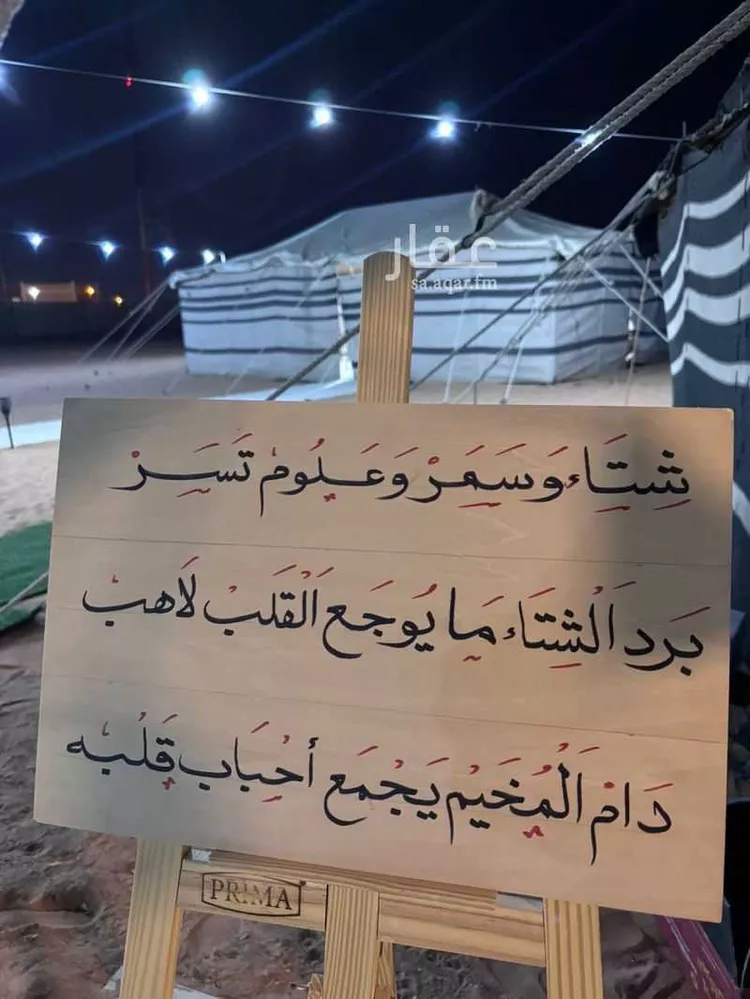 عقار
sa.aqar.fm
شِتَاء وَسَمَرْ وَعَلُومْ تَسَرْ
بَرد الْشِتَاء مَا يُوجَع الْقَلبْ لَاهبْ
دَامْ الْمُخَيم يَجْمَع أحْبَاب قَلْبه
PRIMA